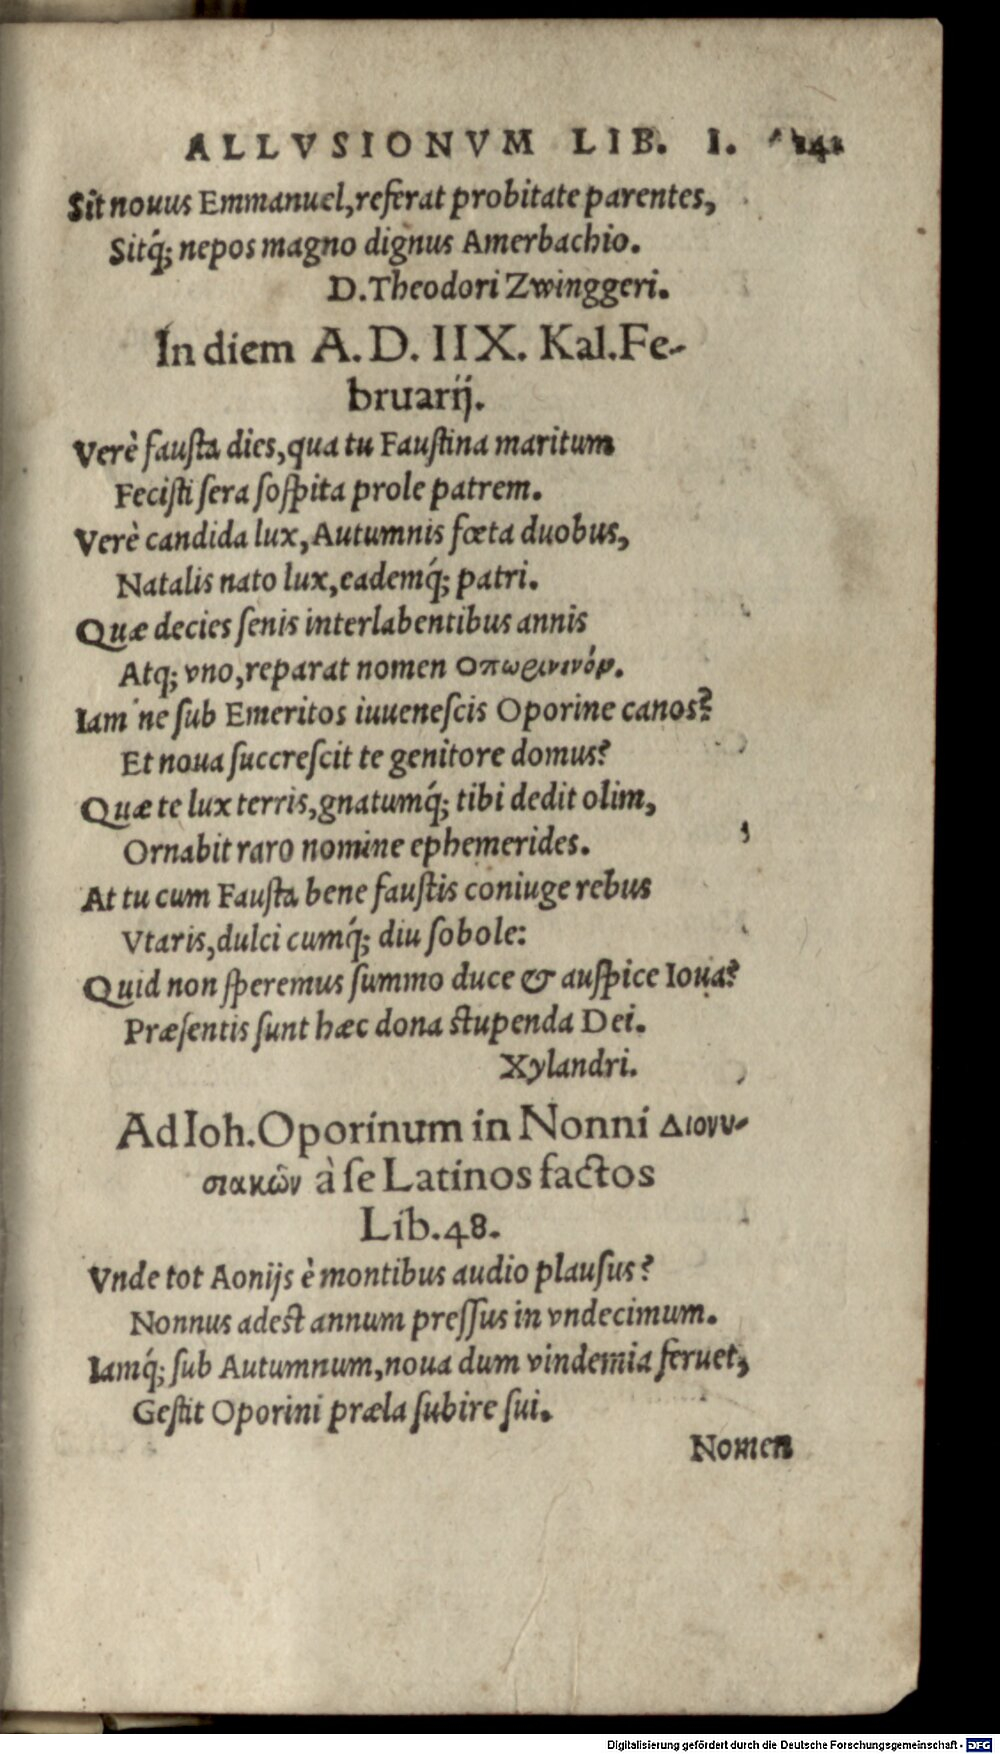 ALLVSIONVM LIB. I. 141
Sit nouus Emmanuel, referat probitate parentes,
Sitq́; nepos magno dignus Amerbachio.
D. Theodori Zwinggeri.
In diem A. D. IIX. Kal. Fe-
bruarij.
Verè fausta dies, qua tu Faustina maritum
Fecisti sera sospita prole patrem.
Verè candida lux, Autumnis fœta duobus,
Natalis nato lux, eademq́; patri.
Quæ decies senis interlabentibus annis
Atq; vno, reparat nomen Οπωρινινόρ.
Iam'ne sub Emeritos iuuenescis Oporine canos?
Et noua succrescit te genitore domus?
Quæ te lux terris, gnatumq́; tibi dedit olim,
Ornabit raro nomine ephemerides.
At tu cum Fausta bene faustis coniuge rebus
Vtaris, dulci cumq́; diu sobole:
Quid non speremus summo duce & auspice Ioua?
Præsentis sunt hæc dona stupenda Dei.
Xylandri.
Ad Ioh. Oporinum in Nonni Διονυ-
σιακῶν à se Latinos factos
Lib. 48.
Vnde tot Aonijs è montibus audio plausus?
Nonnus adest annum pressus in vndecimum.
Iamq́; sub Autumnum, noua dum vindemia feruet,
Gestit Oporini præla subire sui.
Nomen
Digitalisierung gefördert durch die Deutsche Forschungsgemeinschaft - DFG